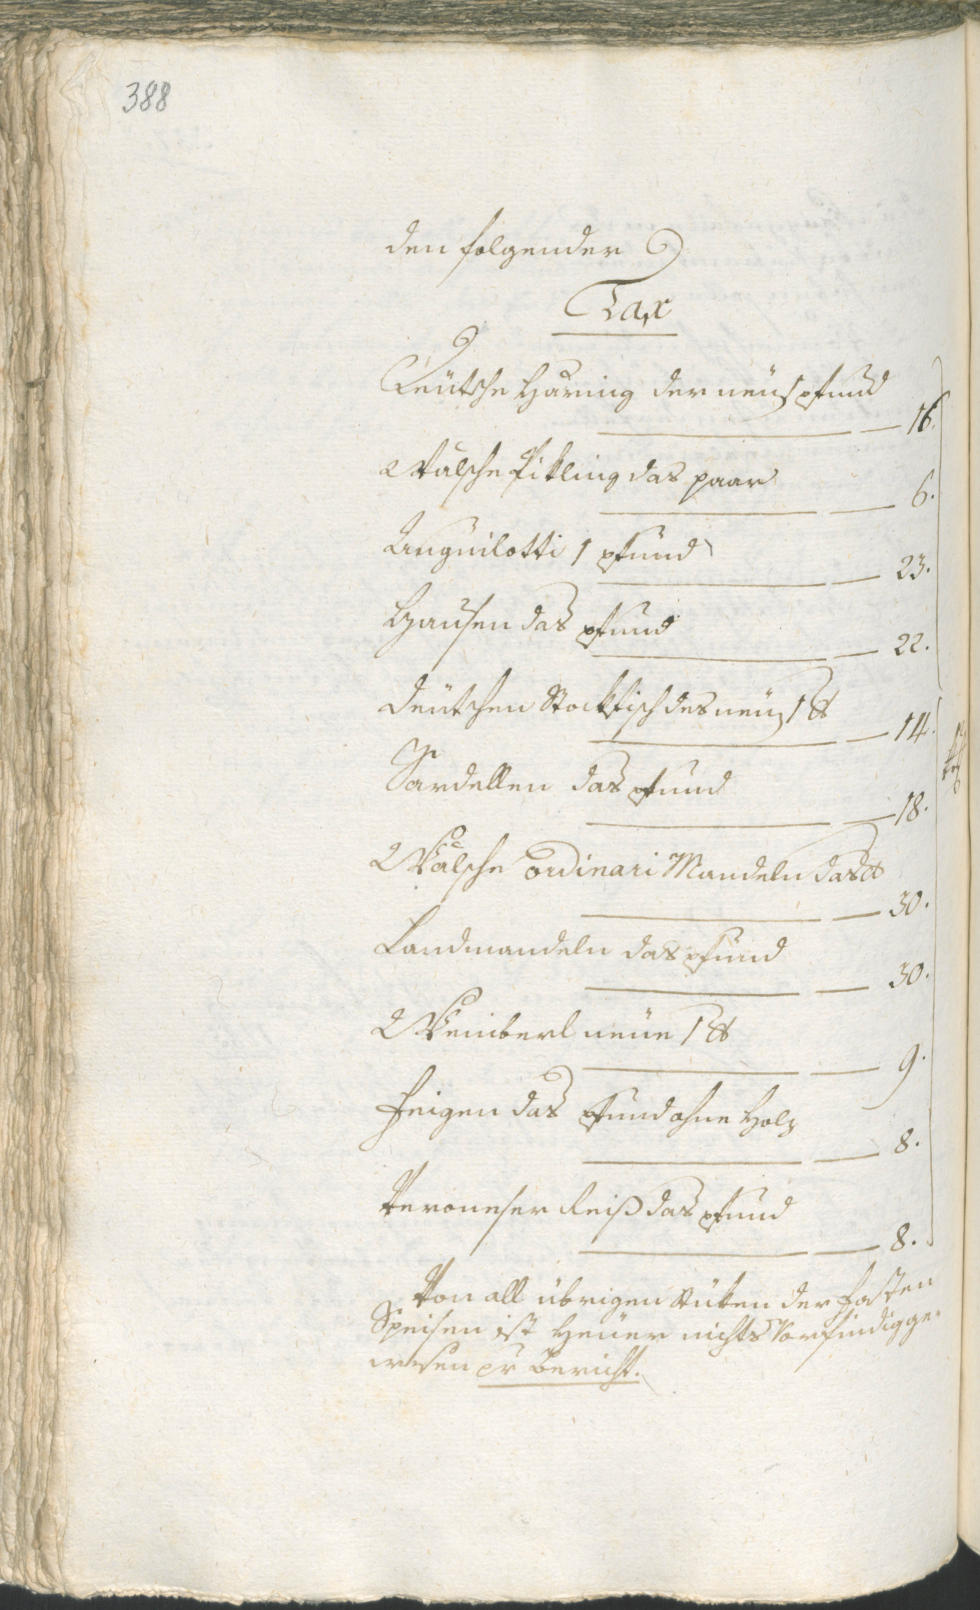 388
den folgender
Tax
Teütsche Häring der neüe 1 pfund
16.
Wälsche Pikling das paar
6.
Anguilotti 1 pfund
23.
Hausen das pfund
22.
deütschen Stockfisch des neüen 1 ℔
14.
Sardellen das pfund
18.
Wälsche ordinari Mandeln das ℔
30.
Landmandeln das pfund
30.
Weinberl neüe 1 ℔
9.
Feigen das Pfund ohne Holz
8.
Veroneser Reiß das pfund
8.
Von all übrigen Stüken der Fasten
Speisen ist heüer nichts Vorfindig ge-
wesen pr Bericht.